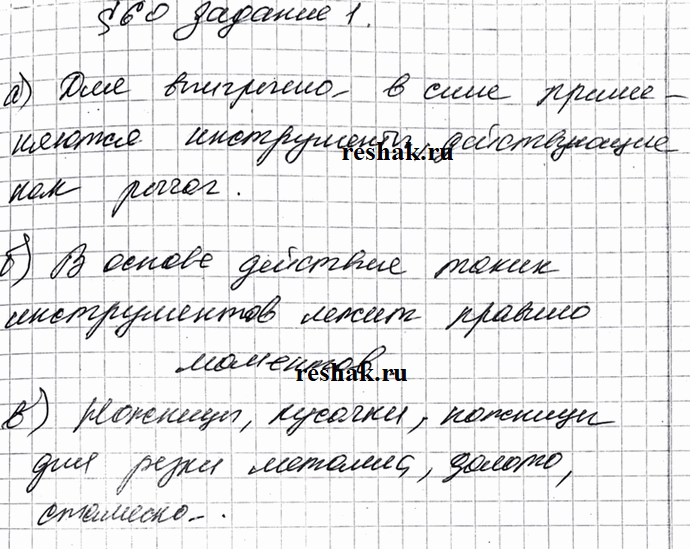 §60 Задание 1.
а) Для выигрыша в силе приме-
няются инструменты, действующие
как рычаг.
reshak.ru
б) В основе действие таких
инструментов лежит правило
моментов
reshak.ru
в) Ножницы, кусачки, ножницы
для резки металла, долото,
стамеска.